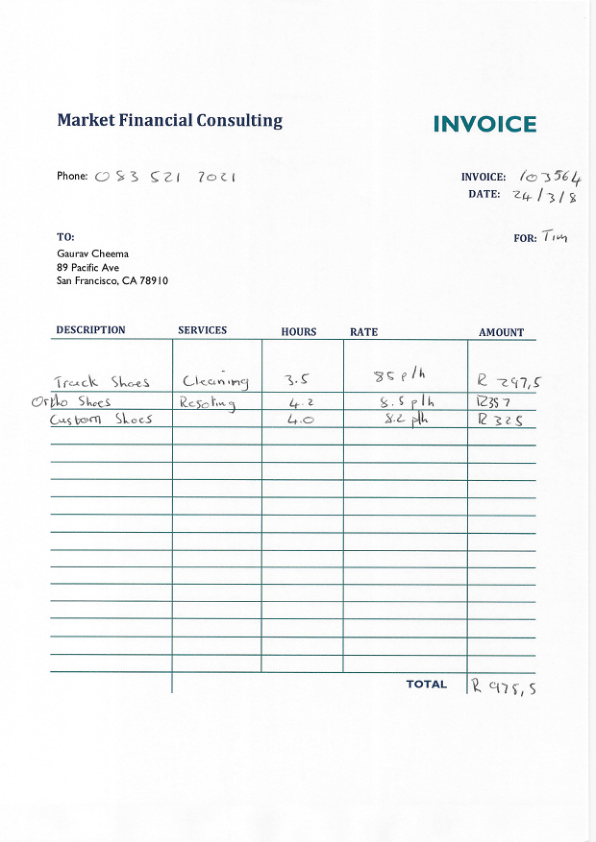 Market Financial Consulting
INVOICE
Phone: 083 521 7021
INVOICE: 103564
DATE: 24/3/8
TO:
FOR: Tim
Gaurav Cheema
89 Pacific Ave
San Francisco, CA 78910
DESCRIPTION SERVICES HOURS RATE AMOUNT
Track Shoes Cleaning 3.5 85 p/h R 297,5
Ortho Shoes Resoling 4.2 8.5 p/h R357
Custom Shoes 4.0 8.2 p/h R 325
TOTAL R 975,5